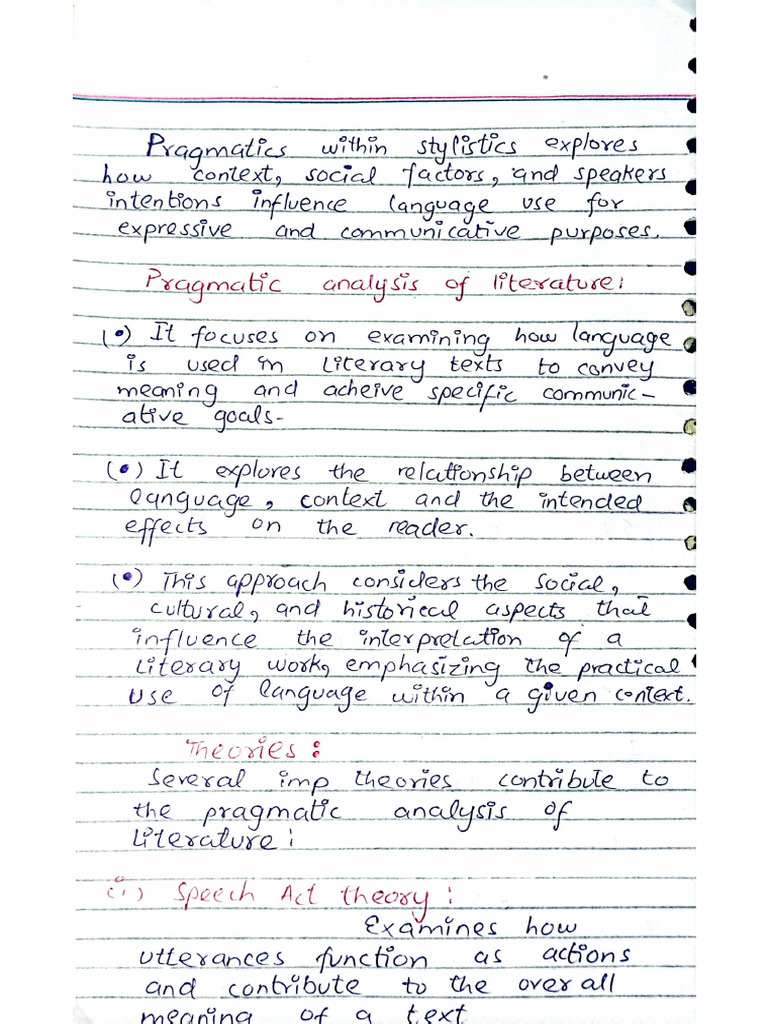 Pragmatics within stylistics explores
how context, social factors, and speakers
intentions influence language use for
expressive and communicative purposes.
Pragmatic analysis of literature:
(•) It focuses on examining how language
is used in literary texts to convey
meaning and acheive specific communic-
ative goals-
(•) It explores the relationship between
language, context and the intended
effects on the reader.
(•) This approach considers the social,
cultural, and historical aspects that
influence the interpretation of a
literary work, emphasizing the practical
use of language within a given context.
Theories:
Several imp theories contribute to
the pragmatic analysis of
literature:
(i) Speech Act theory:
Examines how
utterances function as actions
and contribute to the over all
meaning of a text